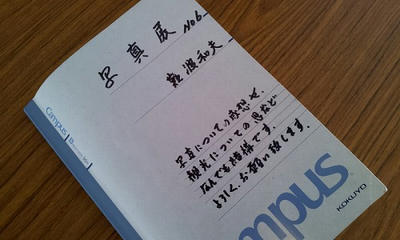 写真展 No6
難波和夫
写真についての感想や、
観光についての思など
なんでも結構です。
よろしく、お願い致します。
Campus
Campus
KOKUYO